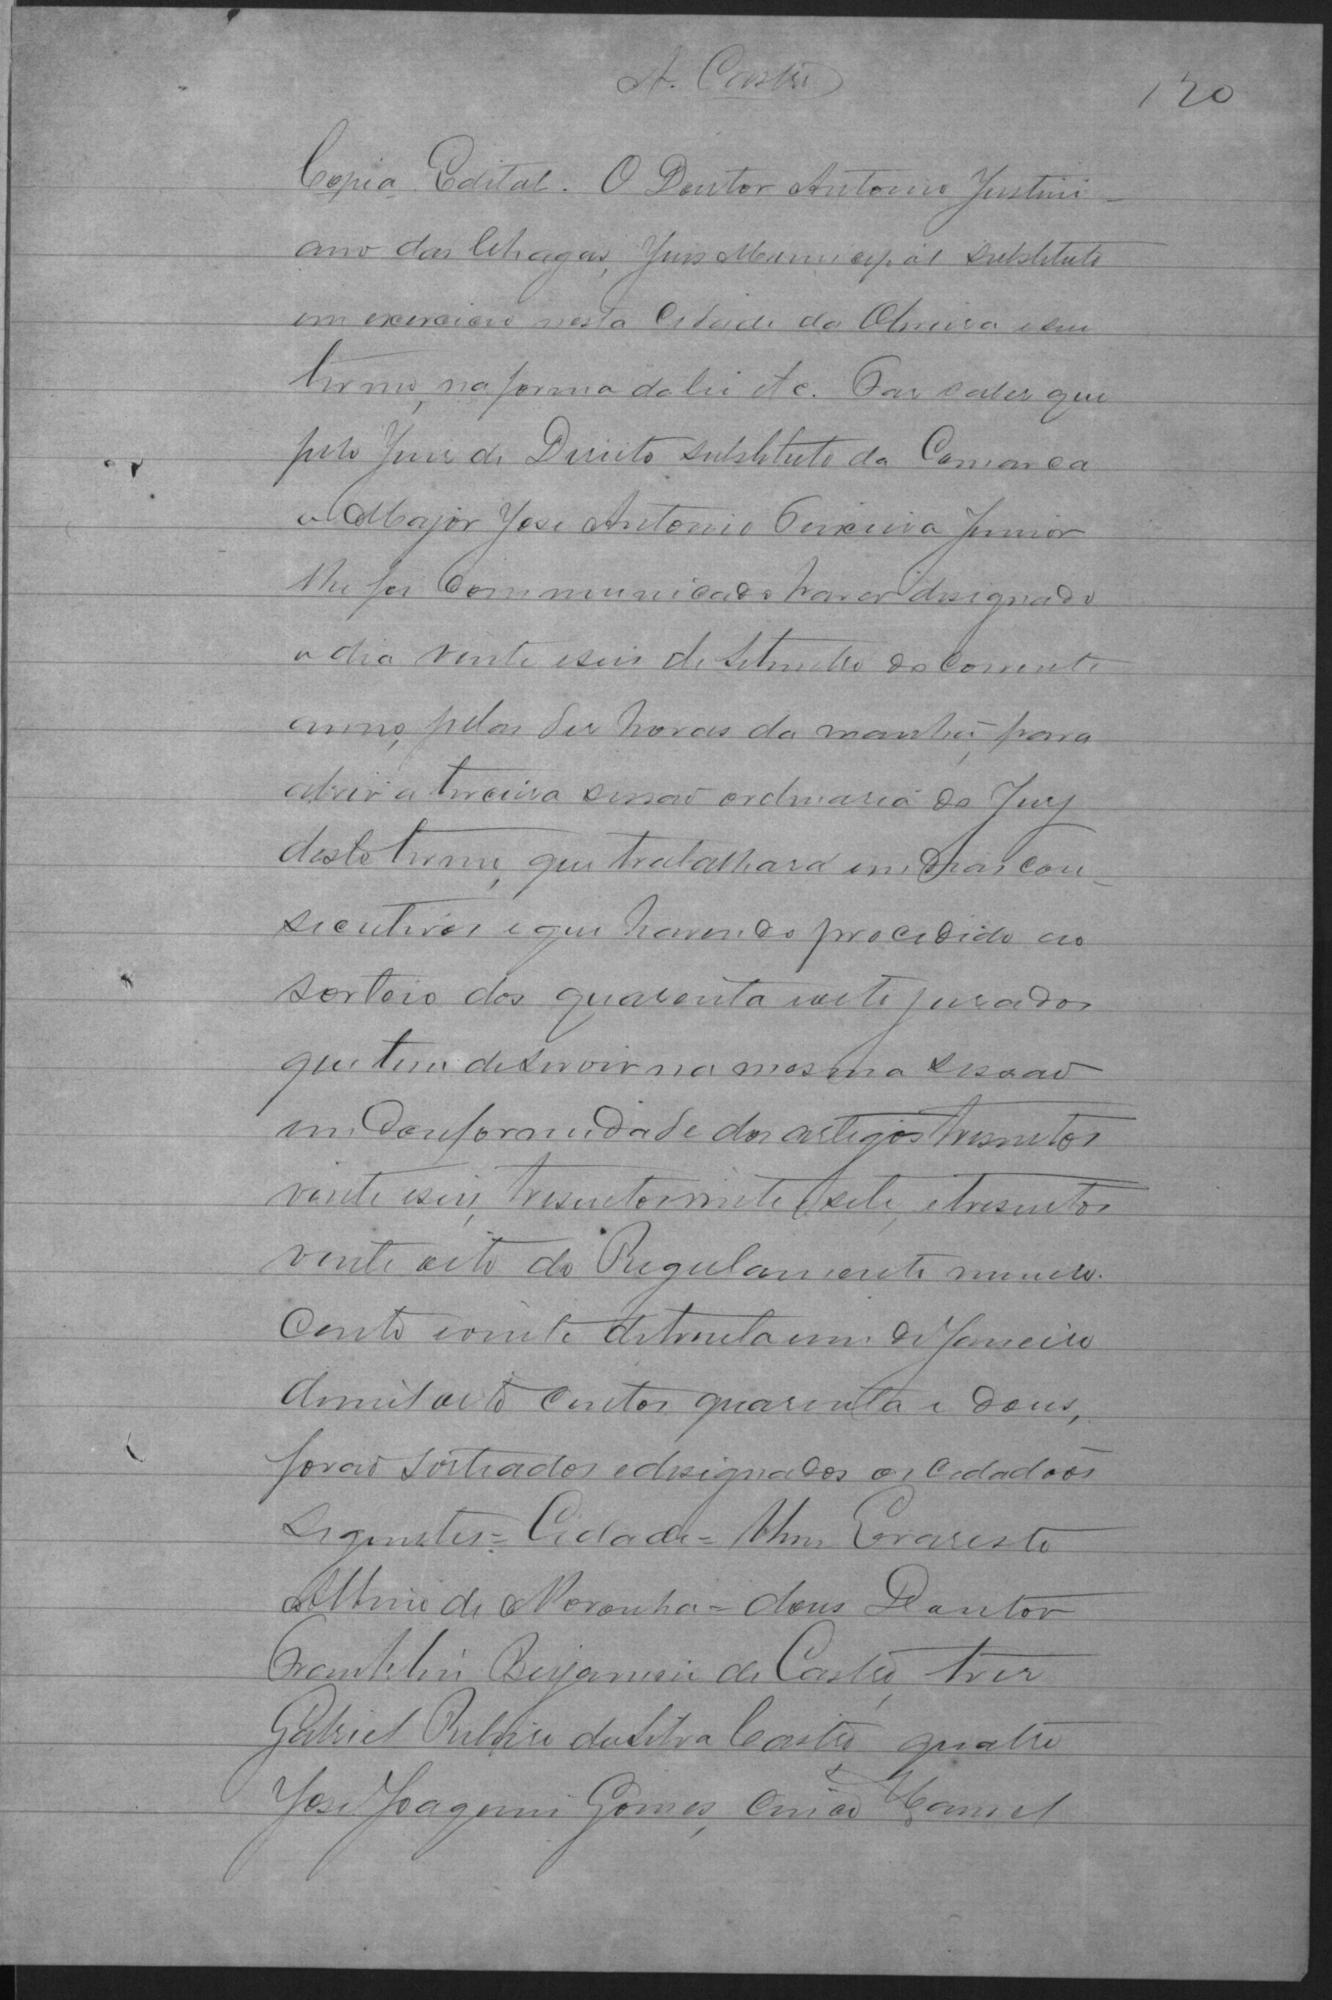 A. Castro
120
Copia Edital. O Doutor Antonio Justini-
ano das Chagas, Juis Municipal substituto
em exercicio nesta Cidade da Oliveira e seu
termo, na forma da lei etc. Faz saber que
pelo Juis de Direito substituto da Comarca
o Major Jose Antonio Teixeira Junior
lhe foi communicado haver designado
o dia vinte e seis de Setembro do corrente
anno, pelas des horas da manhã, para
abrir a terceira sessão ordinaria do Jury
deste termo, que trabalhará em dias con-
secutivos e que havendo procedido ao
sorteio dos quarenta e oito jurados
que tem de servir na mesma sessão
em Conformidade dos artigos tresentos
vinte e seis, tresentos vinte e sete, e tresentos
vinte oito do Regulamento numero
Cento e vinte de trinta e um de Janeiro
de mil oito centos quarenta e dous,
forão sorteados e designados os cidadãos
seguintes = Cidade = Hum Evaristo
Albino de Noronha = dous Doutor
Franklin Benjamin de Castro, tres
Gabriel Ribeiro da Silva Castro, quatro
José Joaquim Gomes, cinco Manoel